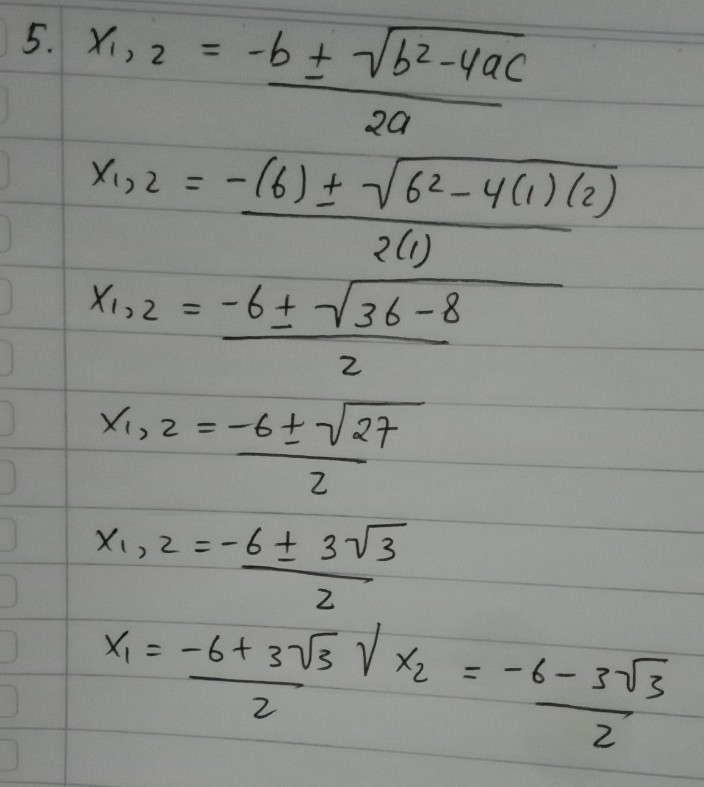 5. x₁,₂ = -b ± √b² - 4ac / 2a
x₁,₂ = -(6) ± √6² - 4(1)(2) / 2(1)
x₁,₂ = -6 ± √36 - 8 / 2
x₁,₂ = -6 ± √27 / 2
x₁,₂ = -6 ± 3√3 / 2
x₁ = -6 + 3√3 / 2 √ x₂ = -6 - 3√3 / 2